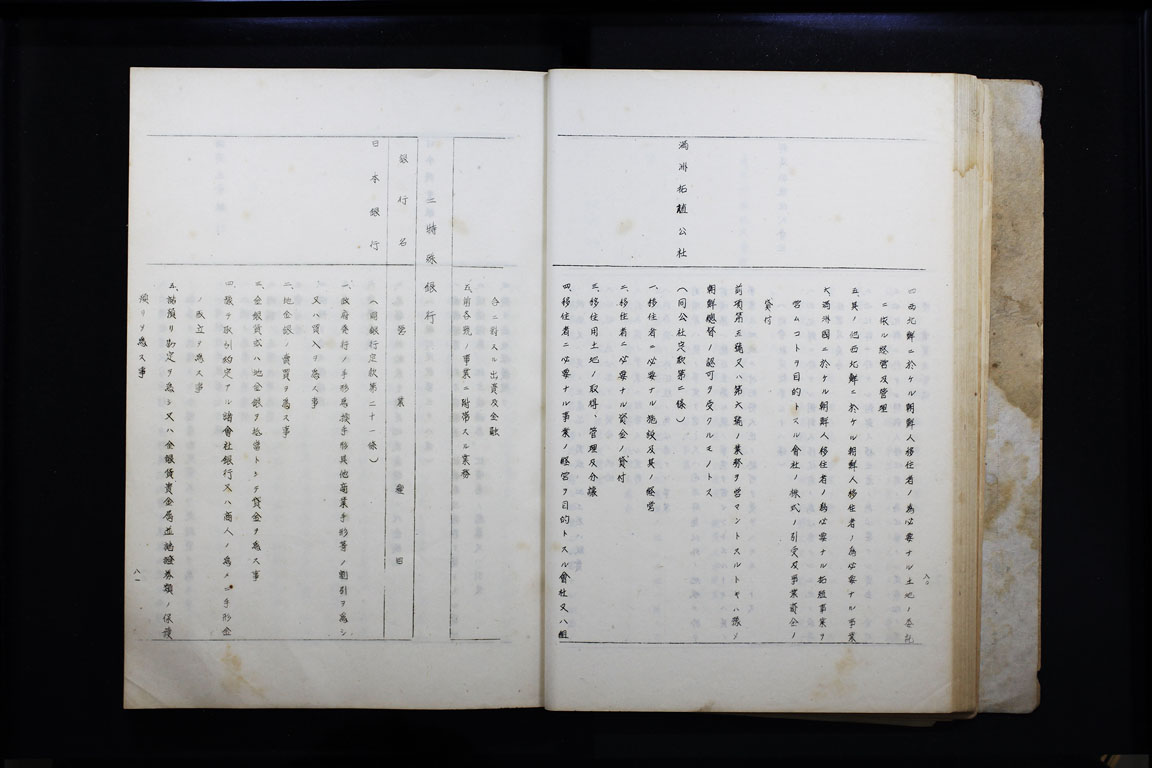 四、西北鮮ニ於ケル朝鮮人移住者ノ為必要ナル土地ノ委託
ニ依ル経営及管理
五、其ノ他西北鮮ニ於ケル朝鮮人移住者ノ為必要ナル事業
六、満洲國ニ於ケル朝鮮人移住者ノ為必要ナル拓殖事業ヲ
営ムコトヲ目的トスル會社ノ株式ノ引受及事業資金ノ
貸付
前項第五號又ハ第六號ノ業務ヲ営マントスルトキハ豫シ
朝鮮總督ノ認可ヲ受クルモノトス
満洲拓植公社
(同公社定款第二條)
一、移住者ニ必要ナル施設及其ノ経営
二、移住者ニ必要ナル資金ノ貸付
三、移住用土地ノ取得、管理及分譲
四、移住者ニ必要ナル事業ノ経営ヲ目的トスル會社又ハ組
八〇
合ニ對スル出資及金融
五、前各號ノ事業ニ附帯スル業務
二特殊銀行
銀行名
営業種目
日本銀行
(同銀行定款第二十一條)
一、政府発行ノ手形為換手形其他商業手形等ノ割引ヲ為シ
又ハ買入ヲ為ス事
二、地金銀ノ賣買ヲ為ス事
三、金銀貨或ハ地金銀ヲ抵當トシテ貸金ヲ為ス事
四、豫テ取引約定アル諸會社銀行又ハ商人ノ為メニ手形金
ノ取立ヲ為ス事
五、諸預リ勘定ヲ為シ又ハ金銀貨貴金属並諸證券類ノ保護
預リヲ為ス事
八一